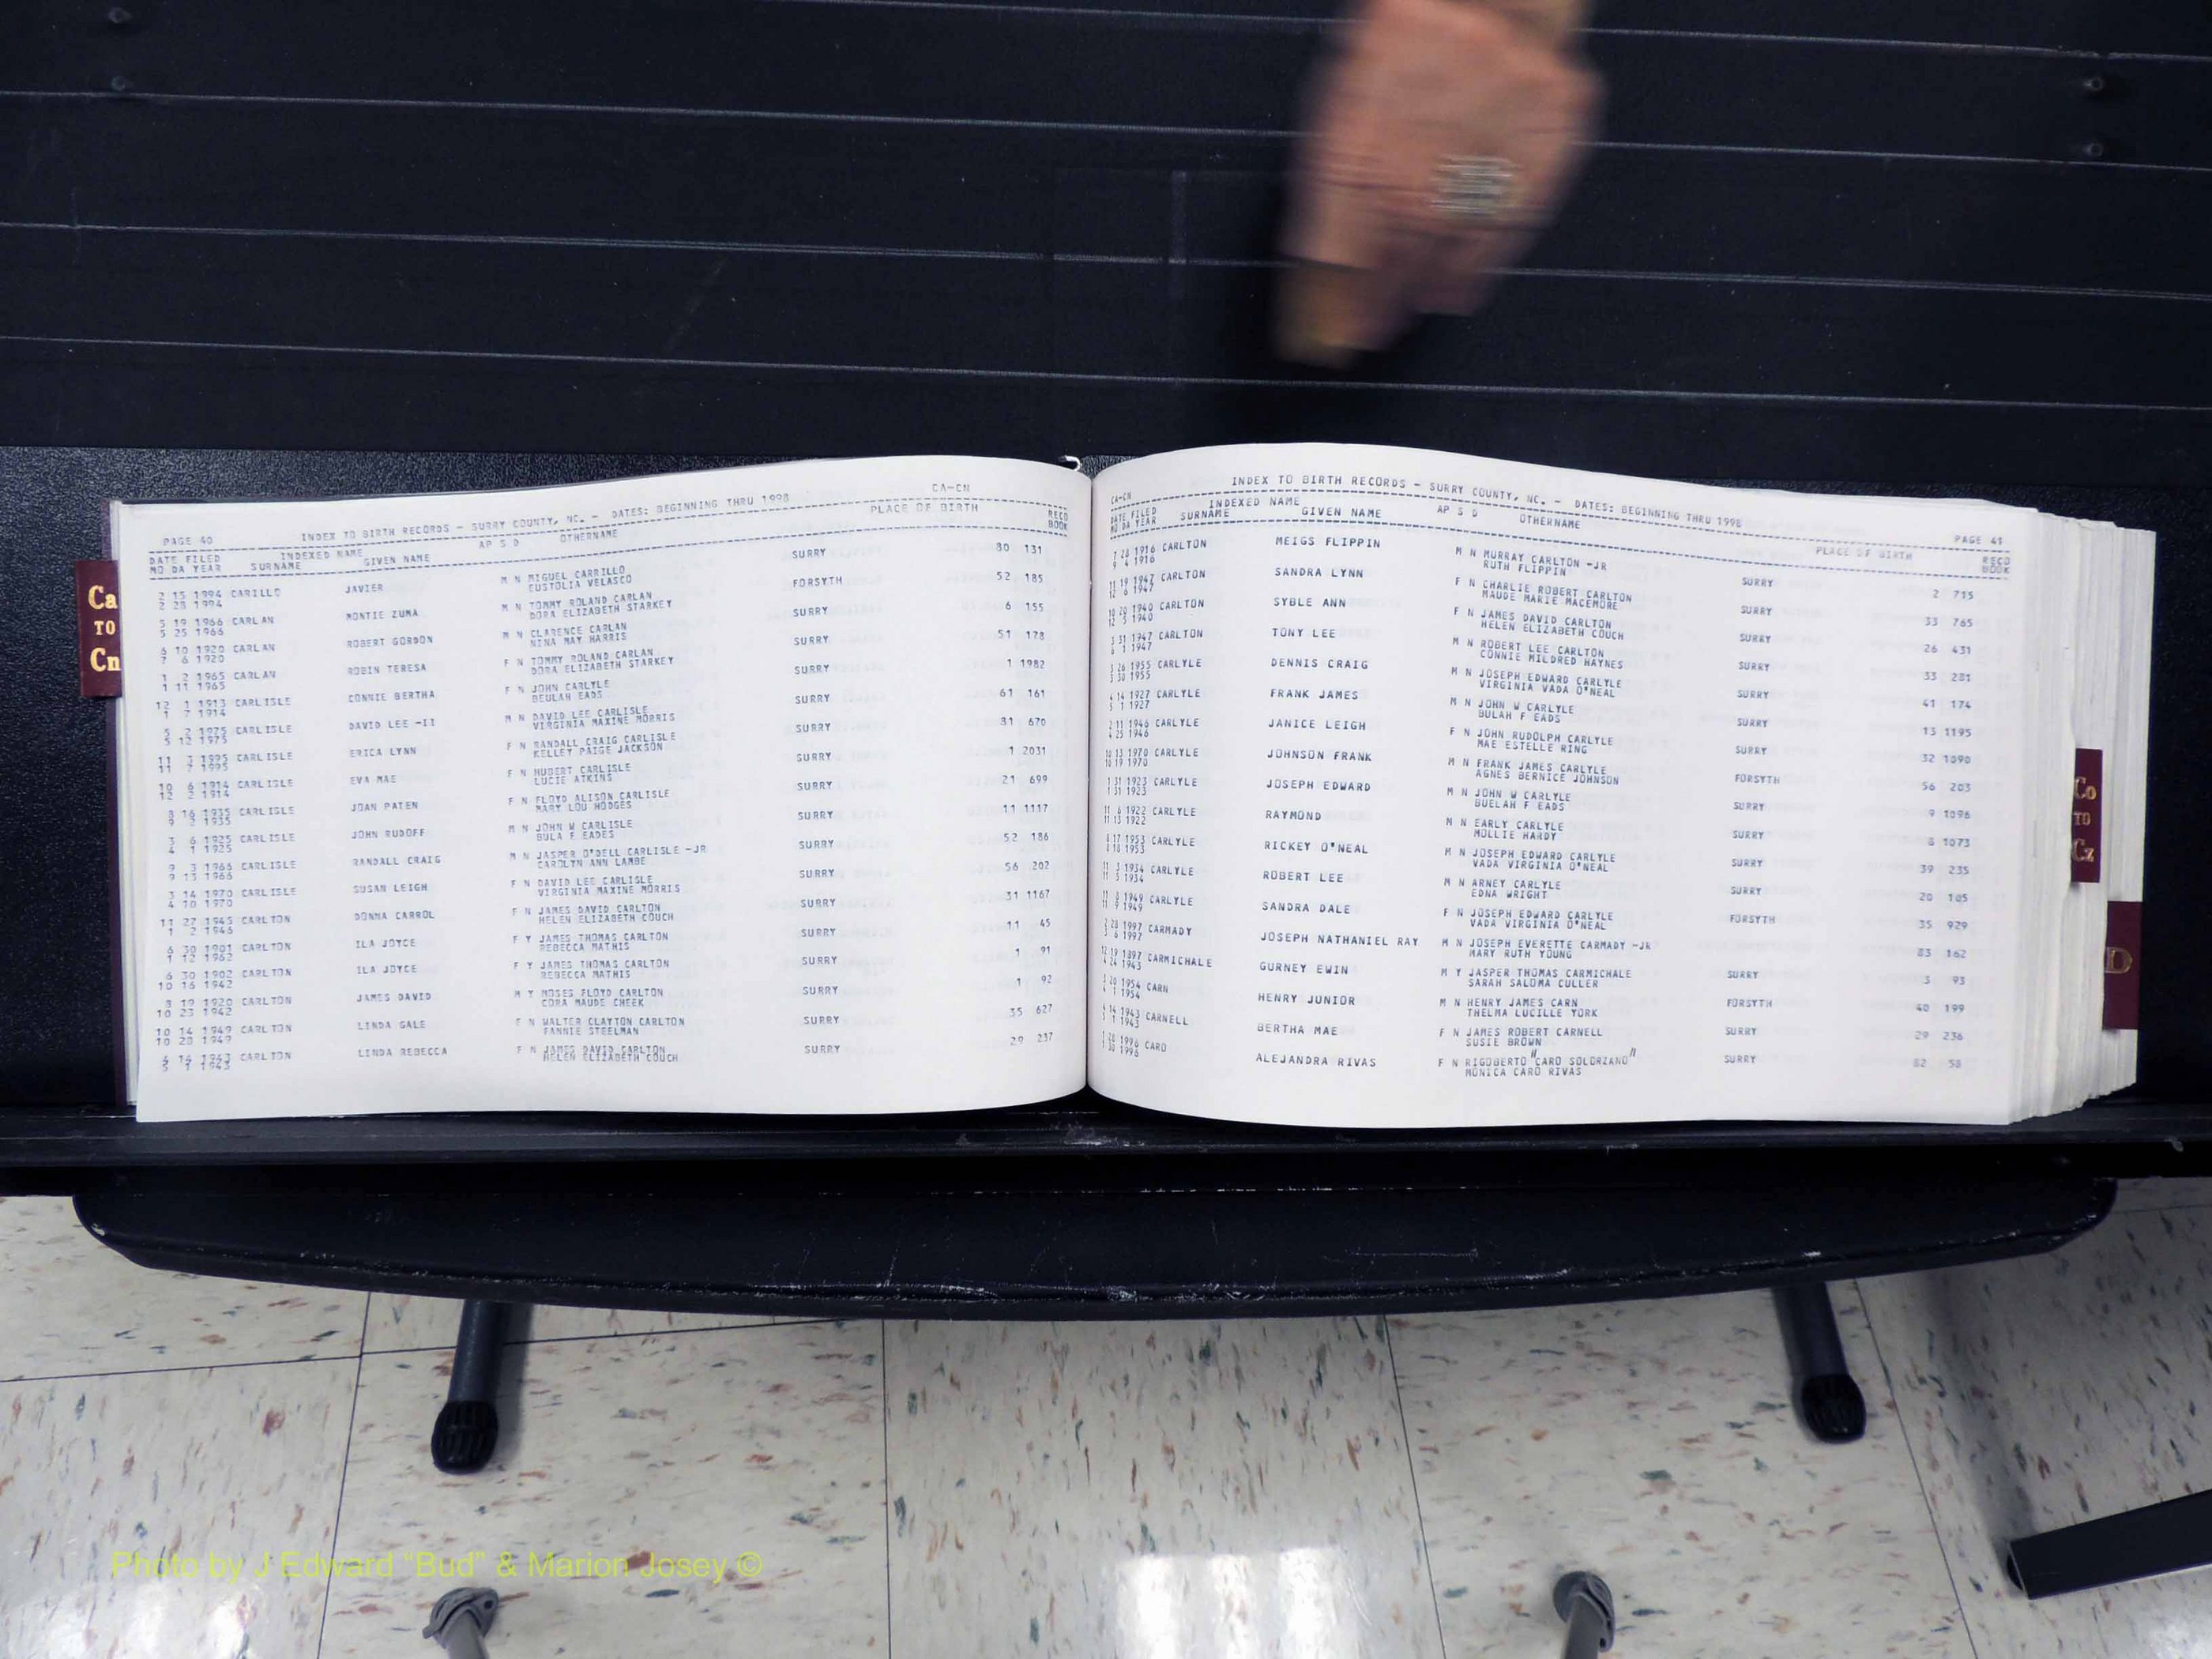 Ca
TO
Cn
PAGE 40 INDEX TO BIRTH RECORDS - SURRY COUNTY, NC. - DATES: BEGINNING THRU 1998 CA-CN
DATE FILED INDEXED NAME AP S D OTHERNAME PLACE OF BIRTH RECO
MO DA YEAR SURNAME GIVEN NAME BOOK
2 15 1994 CARILLO JAVIER M N MIGUEL CARRILLO SURRY 80 131
2 28 1994 EUSTOLIA VELASCO
5 19 1966 CARLAN MONTIE ZUMA M N TOMMY ROLAND CARLAN FORSYTH 52 185
5 25 1966 DORA ELIZABETH STARKEY
6 10 1920 CARLAN ROBERT GORDON M N CLARENCE CARLAN SURRY 6 155
7 6 1920 NINA MAY HARRIS
1 2 1965 CARLAN ROBIN TERESA F N TOMMY ROLAND CARLAN SURRY 51 178
1 11 1965 DORA ELIZABETH STARKEY
12 1 1913 CARLISLE CONNIE BERTHA F N JOHN CARLYLE SURRY 1 1982
1 7 1914 BEULAH EADS
5 2 1975 CARLISLE DAVID LEE -II M N DAVID LEE CARLISLE SURRY 61 161
5 12 1975 VIRGINIA MAXINE MORRIS
11 3 1995 CARLISLE ERICA LYNN F N RANDALL CRAIG CARLISLE SURRY 81 670
11 7 1995 KELLEY PAIGE JACKSON
10 6 1914 CARLISLE EVA MAE F N HUBERT CARLISLE SURRY 1 2031
12 2 1914 LUCIE ATKINS
8 16 1935 CARLISLE JOAN PATEN F N FLOYD ALISON CARLISLE SURRY 21 699
9 2 1935 MARY LOU HODGES
3 6 1925 CARLISLE JOHN RUDOFF M N JOHN W CARLISLE SURRY 11 1117
4 1 1925 BULA F EADES
9 3 1966 CARLISLE RANDALL CRAIG M N JASPER O'DELL CARLISLE -JR SURRY 52 186
9 13 1966 CAROLYN ANN LAMBE
3 14 1970 CARLISLE SUSAN LEIGH F N DAVID LEE CARLISLE SURRY 56 202
4 10 1970 VIRGINIA MAXINE MORRIS
11 27 1945 CARLTON DONNA CARROL F N JAMES DAVID CARLTON SURRY 31 1167
1 2 1946 HELEN ELIZABETH COUCH
6 30 1901 CARLTON ILA JOYCE F Y JAMES THOMAS CARLTON SURRY 11 45
1 12 1962 REBECCA MATHIS
6 30 1902 CARLTON ILA JOYCE F Y JAMES THOMAS CARLTON SURRY 1 91
10 16 1942 REBECCA MATHIS
8 19 1920 CARLTON JAMES DAVID M Y MOSES FLOYD CARLTON SURRY 1 92
10 23 1942 CORA MAUDE CHEEK
10 14 1949 CARLTON LINDA GALE F N WALTER CLAYTON CARLTON SURRY 35 627
10 20 1949 FANNIE STEELMAN
4 14 1943 CARLTON LINDA REBECCA F N JAMES DAVID CARLTON SURRY 29 237
5 1 1943 HELEN ELIZABETH COUCH
CA-CN INDEX TO BIRTH RECORDS - SURRY COUNTY, NC. - DATES: BEGINNING THRU 1998 PAGE 41
DATE FILED INDEXED NAME AP S D OTHERNAME PLACE OF BIRTH RECO
MO DA YEAR SURNAME GIVEN NAME BOOK
7 28 1916 CARLTON MEIGS FLIPPIN M N MURRAY CARLTON -JR SURRY 2 715
9 4 1916 RUTH FLIPPIN
11 19 1947 CARLTON SANDRA LYNN F N CHARLIE ROBERT CARLTON SURRY 33 765
12 6 1947 MAUDE MARIE MACEMORE
10 20 1940 CARLTON SYBLE ANN F N JAMES DAVID CARLTON SURRY 26 431
12 5 1940 HELEN ELIZABETH COUCH
3 31 1947 CARLTON TONY LEE M N ROBERT LEE CARLTON SURRY 33 281
1 1947 CONNIE MILDRED HAYNES
3 26 1955 CARLYLE DENNIS CRAIG M N JOSEPH EDWARD CARLYLE SURRY 41 174
3 30 1955 VIRGINIA VADA O'NEAL
4 14 1927 CARLYLE FRANK JAMES M N JOHN W CARLYLE SURRY 13 1195
5 1 1927 BULAH F EADS
2 11 1946 CARLYLE JANICE LEIGH F N JOHN RUDOLPH CARLYLE SURRY 32 1090
4 25 1946 MAE ESTELLE RING
10 13 1970 CARLYLE JOHNSON FRANK M N FRANK JAMES CARLYLE FORSYTH 56 203
10 19 1970 AGNES BERNICE JOHNSON
1 31 1923 CARLYLE JOSEPH EDWARD M N JOHN W CARLYLE SURRY 9 1096
1 31 1923 BUELAH F EADS
11 6 1922 CARLYLE RAYMOND M N EARLY CARLYLE SURRY 8 1073
11 13 1922 MOLLIE HARDY
8 17 1953 CARLYLE RICKEY O'NEAL M N JOSEPH EDWARD CARLYLE SURRY 39 235
8 18 1953 VADA VIRGINIA O'NEAL
11 3 1934 CARLYLE ROBERT LEE M N ARNEY CARLYLE SURRY 20 105
11 5 1934 EDNA WRIGHT
11 8 1949 CARLYLE SANDRA DALE F N JOSEPH EDWARD CARLYLE FORSYTH 35 929
11 9 1949 VADA VIRGINIA O'NEAL
2 28 1997 CARMADY JOSEPH NATHANIEL RAY M N JOSEPH EVERETTE CARMADY -JR 83 162
3 6 1997 MARY RUTH YOUNG
12 19 1897 CARMICHALE GURNEY EWIN M Y JASPER THOMAS CARMICHALE SURRY 3 93
4 24 1943 SARAH SALOMA CULLER
3 20 1954 CARN HENRY JUNIOR M N HENRY JAMES CARN FORSYTH 40 199
4 1 1954 THELMA LUCILLE YORK
4 14 1943 CARNELL BERTHA MAE F N JAMES ROBERT CARNELL SURRY 29 236
5 1 1943 SUSIE BROWN
1 28 1996 CARO ALEJANDRA RIVAS F N RIGOBERTO "CARO SOLORZANO" SURRY 82 58
1 30 1996 MONICA CARO RIVAS
Co
TO
Cz
D
Photo by J Edward "Bud" & Marion Josey ©